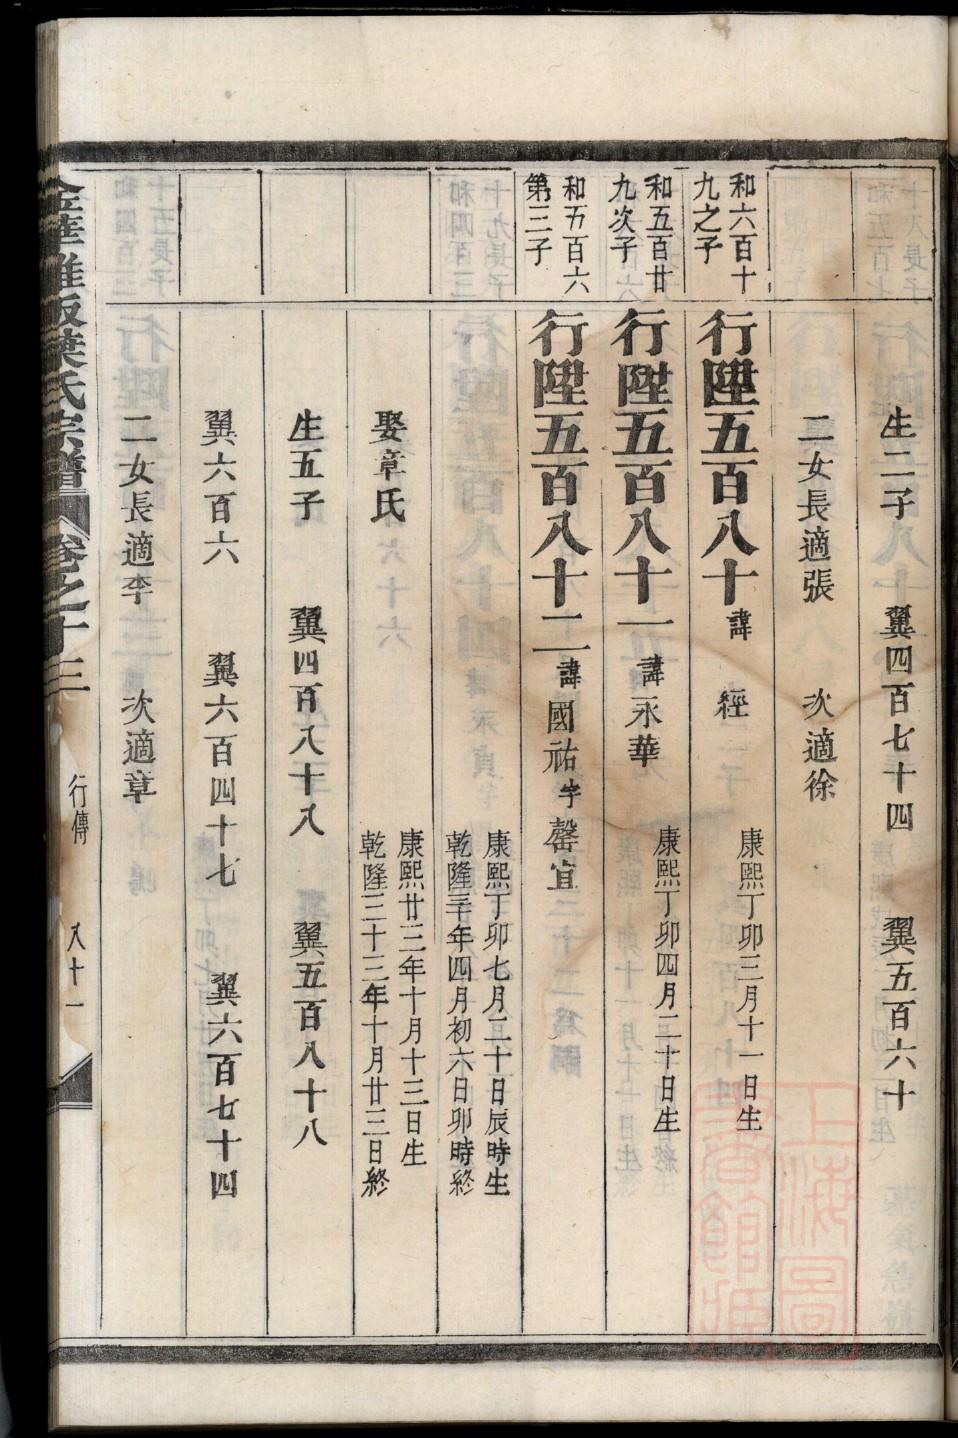 生二子 翼四百七十四 翼五百六十
二女長適張 次適徐
和六百十
九之子
行陞五百八十 諱 經 康熙丁卯三月十一日生
和五百廿
九次子
行陞五百八十一 諱永華 康熙丁卯四月二十日生
和五百六
第三子
行陞五百八十二 諱國祐 字罄宜
康熙丁卯七月二十日辰時生
乾隆三年四月初六日卯時終
娶章氏
康熙廿三年十月十三日生
乾隆二十三年十月廿三日終
生五子 翼四百八十八 翼五百八十八
翼六百六 翼六百四十七 翼六百七十四
二女長適李 次適章
金華 葉氏宗譜 卷之十三 行傳 八十一
上海圖書館藏